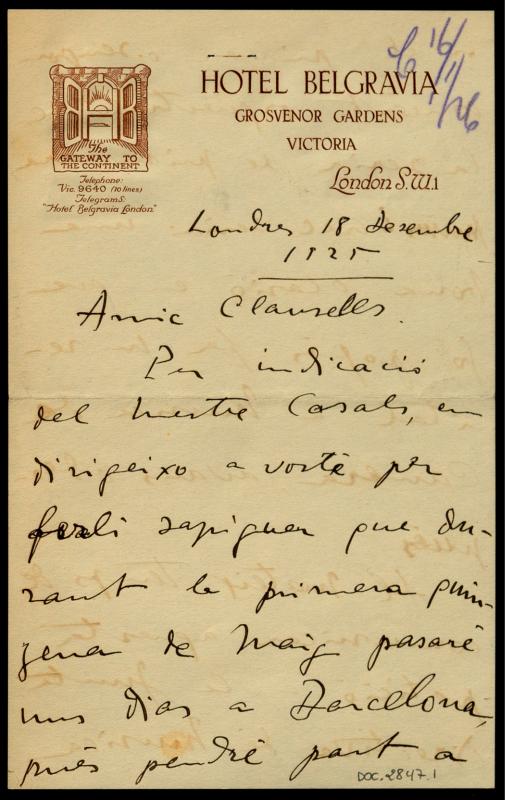 HOTEL BELGRAVIA
GROSVENOR GARDENS
VICTORIA
London S.W.1
The
GATEWAY TO
THE CONTINENT
Telephone:
Vic. 9640 (10 lines)
Telegrams:
"Hotel Belgravia London"
C 16/1/26
Londres 18 Desembre
1925
Amic Clausells.
Per indicació
del Mestre Casals, em
dirigeixo a vostè per
ferli sapiguer que du-
rant la primera quin-
zena de Maig pasaré
uns dias a Barcelona,
pués pendré part a
DOC. 2847.1